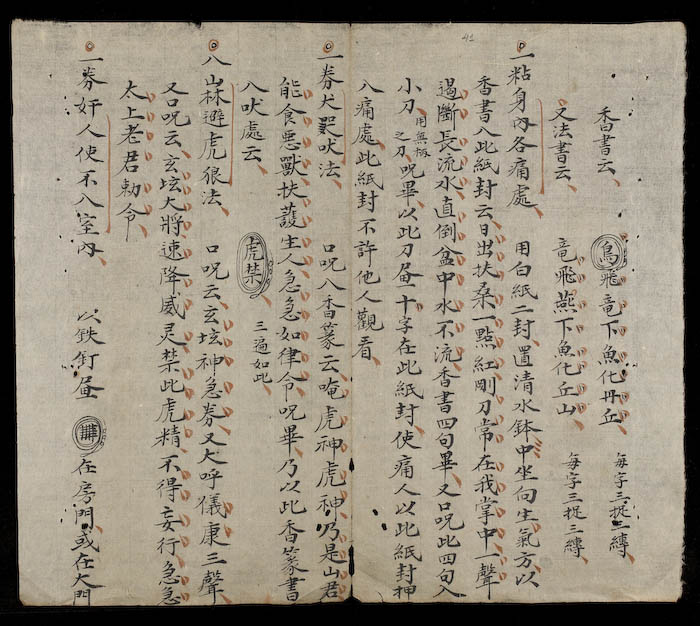 41
香書云 鳥飛竜下魚化丹丘 每字三捉三縳
又法書云 竜飛燕下魚化丘山 每字三捉三縳
一粘身內各痛處 用白紙二封置清水鉢中坐向生氣方以
香書入此紙封云日出扶桑一點紅剛刀常在我掌中一聲
遏斷長流水直倒盆中水不流香書四句畢又口呪此四句入
小刀用無板之刀呪畢以此刀𦘕十字在此紙封使痛人以此紙封押
八痛處此紙封不許他人觀看
一券犬 吠法 口呪八香篆云唵虎神虎神乃是山君
能食悪獸扶護生人急急如律令呪畢乃以此香篆書
八吠處云 虎禁 三遍如此
八山林避虎狼法 口呪云玄坛神急券又大呼儀康三聲
又口呪云玄坛大將速降威灵禁此虎精不得妄行急急
太上老君勅令
一券奸人使不八室內 以鉄釘𦘕 在房門或在大門